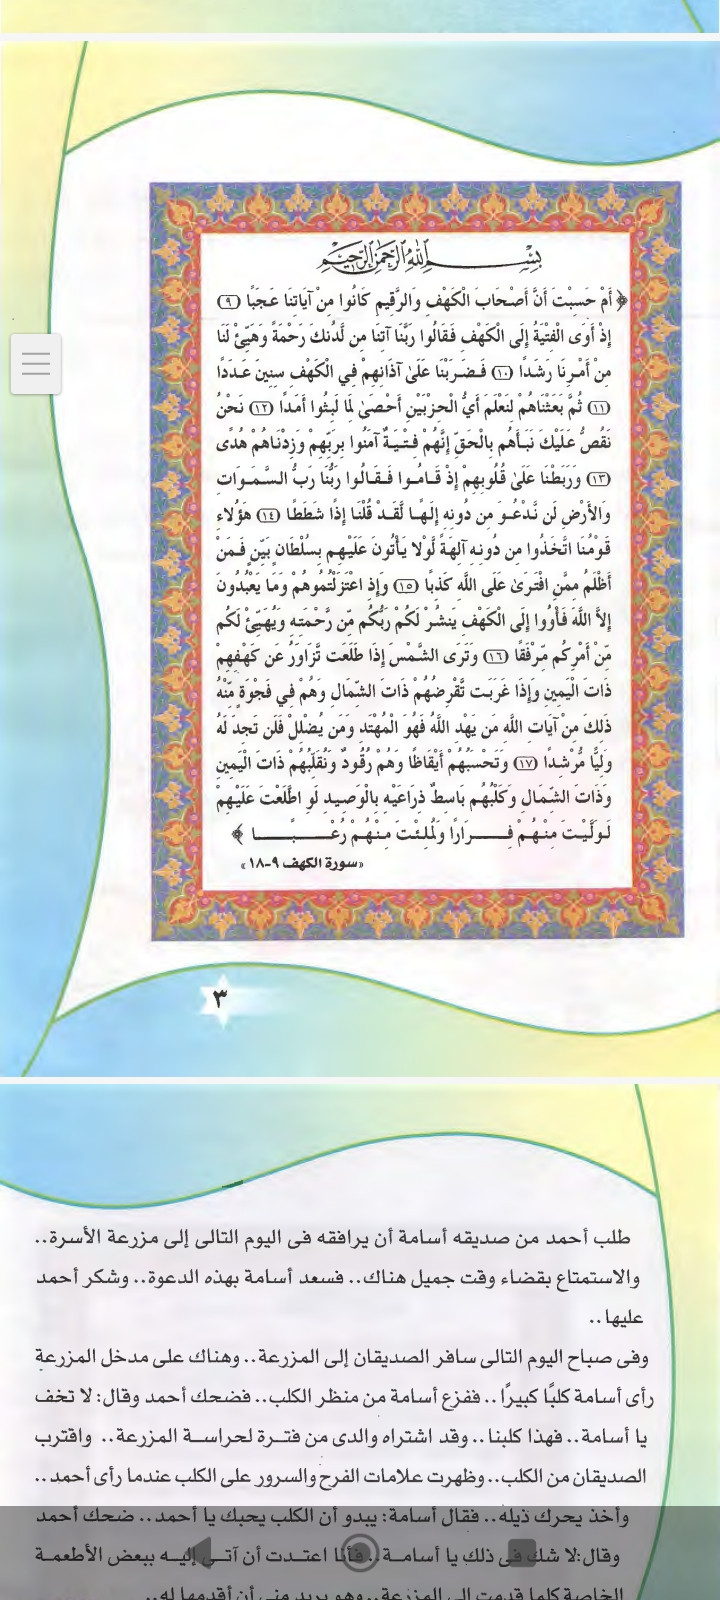 بسم الله الرحمن الرحيم
﴿ أَمْ حَسِبْتَ أَنَّ أَصْحَابَ الْكَهْفِ وَالرَّقِيمِ كَانُوا مِنْ آيَاتِنَا عَجَبًا (٩)
إِذْ أَوَى الْفِتْيَةُ إِلَى الْكَهْفِ فَقَالُوا رَبَّنَا آتِنَا مِن لَّدُنكَ رَحْمَةً وَهَيِّئْ لَنَا
مِنْ أَمْرِنَا رَشَدًا (١٠) فَضَرَبْنَا عَلَىٰ آذَانِهِمْ فِي الْكَهْفِ سِنِينَ عَدَدًا
(١١) ثُمَّ بَعَثْنَاهُمْ لِنَعْلَمَ أَيُّ الْحِزْبَيْنِ أَحْصَىٰ لِمَا لَبِثُوا أَمَدًا (١٢) نَحْنُ
نَقُصُّ عَلَيْكَ نَبَأَهُم بِالْحَقِّ إِنَّهُمْ فِتْيَةٌ آمَنُوا بِرَبِّهِمْ وَزِدْنَاهُمْ هُدًى
(١٣) وَرَبَطْنَا عَلَىٰ قُلُوبِهِمْ إِذْ قَامُوا فَقَالُوا رَبُّنَا رَبُّ السَّمَوَاتِ
وَالأَرْضِ لَن نَّدْعُوَ مِن دُونِهِ إِلَهًا لَّقَدْ قُلْنَا إِذًا شَطَطًا (١٤) هَؤُلاءِ
قَوْمُنَا اتَّخَذُوا مِن دُونِهِ آلِهَةً لَّوْلا يَأْتُونَ عَلَيْهِم بِسُلْطَانٍ بَيِّنٍ فَمَنْ
أَظْلَمُ مِمَّنِ افْتَرَىٰ عَلَى اللَّهِ كَذِبًا (١٥) وَإِذِ اعْتَزَلْتُمُوهُمْ وَمَا يَعْبُدُونَ
إِلاَّ اللَّهَ فَأْوُوا إِلَى الْكَهْفِ يَنشُرْ لَكُمْ رَبُّكُم مِّن رَّحْمَتِهِ وَيُهَيِّئْ لَكُم
مِّنْ أَمْرِكُم مِّرْفَقًا (١٦) وَتَرَى الشَّمْسَ إِذَا طَلَعَت تَّزَاوَرُ عَن كَهْفِهِمْ
ذَاتَ الْيَمِينِ وَإِذَا غَرَبَت تَّقْرِضُهُمْ ذَاتَ الشِّمَالِ وَهُمْ فِي فَجْوَةٍ مِّنْهُ
ذَلِكَ مِنْ آيَاتِ اللَّهِ مَن يَهْدِ اللَّهُ فَهُوَ الْمُهْتَدِ وَمَن يُضْلِلْ فَلَن تَجِدَ لَهُ
وَلِيًّا مُّرْشِدًا (١٧) وَتَحْسَبُهُمْ أَيْقَاظًا وَهُمْ رُقُودٌ وَنُقَلِّبُهُمْ ذَاتَ الْيَمِينِ
وَذَاتَ الشِّمَالِ وَكَلْبُهُم بَاسِطٌ ذِرَاعَيْهِ بِالْوَصِيدِ لَوِ اطَّلَعْتَ عَلَيْهِمْ
لَوَلَّيْتَ مِنْهُمْ فِرَارًا وَلَمُلِئْتَ مِنْهُمْ رُعْبًا ﴾
«سورة الكهف ٩-١٨»
٣
طلب أحمد من صديقه أسامة أن يرافقه فى اليوم التالى إلى مزرعة الأسرة..
والاستمتاع بقضاء وقت جميل هناك.. فسعد أسامة بهذه الدعوة.. وشكر أحمد
عليها..
وفى صباح اليوم التالى سافر الصديقان إلى المزرعة.. وهناك على مدخل المزرعة
رأى أسامة كلبًا كبيرًا.. ففزع أسامة من منظر الكلب.. فضحك أحمد وقال: لا تخف
يا أسامة.. فهذا كلبنا.. وقد اشتراه والدى من فترة لحراسة المزرعة.. واقترب
الصديقان من الكلب.. وظهرت علامات الفرح والسرور على الكلب عندما رأى أحمد..
وأخذ يحرك ذيله.. فقال أسامة: يبدو أن الكلب يحبك يا أحمد.. ضحك أحمد
وقال: لا شك فى ذلك يا أسامة.. فأنا اعتدت أن آتى إليه ببعض الأطعمة
الخاصة كلما قدمت إلى المزرعة.. وهو يريد منى أن أقدمها له..